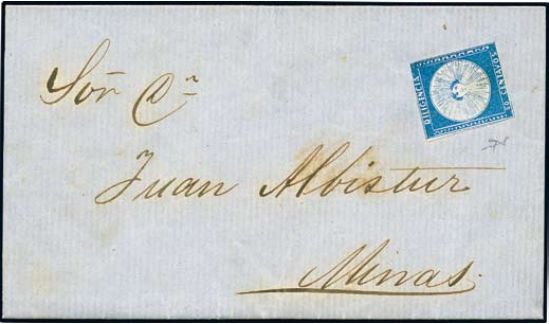 Sor Dn
Juan Albistur
Minas.
DILIGENCIA
60 CENTAVOS